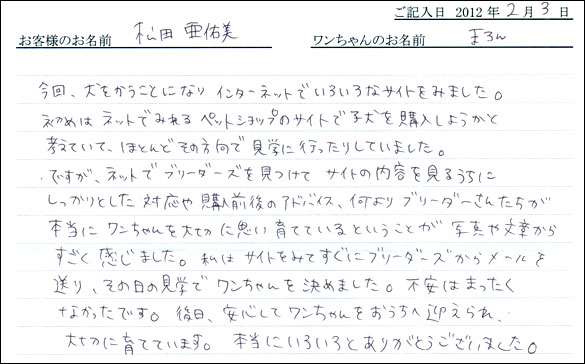 ご記入日 2012年2月3日
お客様のお名前 松田 亜佑美 ワンちゃんのお名前 まろん
今回、犬をかうことになり インターネットでいろいろなサイトをみました。
初めは ネットでみれる ペットショップのサイトで子犬を購入しようかと
考えていて、ほとんどその方向で見学に行ったりしていました。
ですが、ネットで ブリーダーズを見つけて サイトの内容を見るうちに
しっかりとした 対応や購入前後のアドバイス、何よりブリーダーさんたちが
本当に ワンちゃんを大切に思い育てているということが 写真や文章から
すごく 感じました。私はサイトをみてすぐにブリーダーズからメールを
送り、その日の見学で ワンちゃんを決めました。不安はまったく
なかったです。後日、安心して ワンちゃんをおうちへ迎えられ、
大切に育てています。本当にいろいろとありがとうございました。